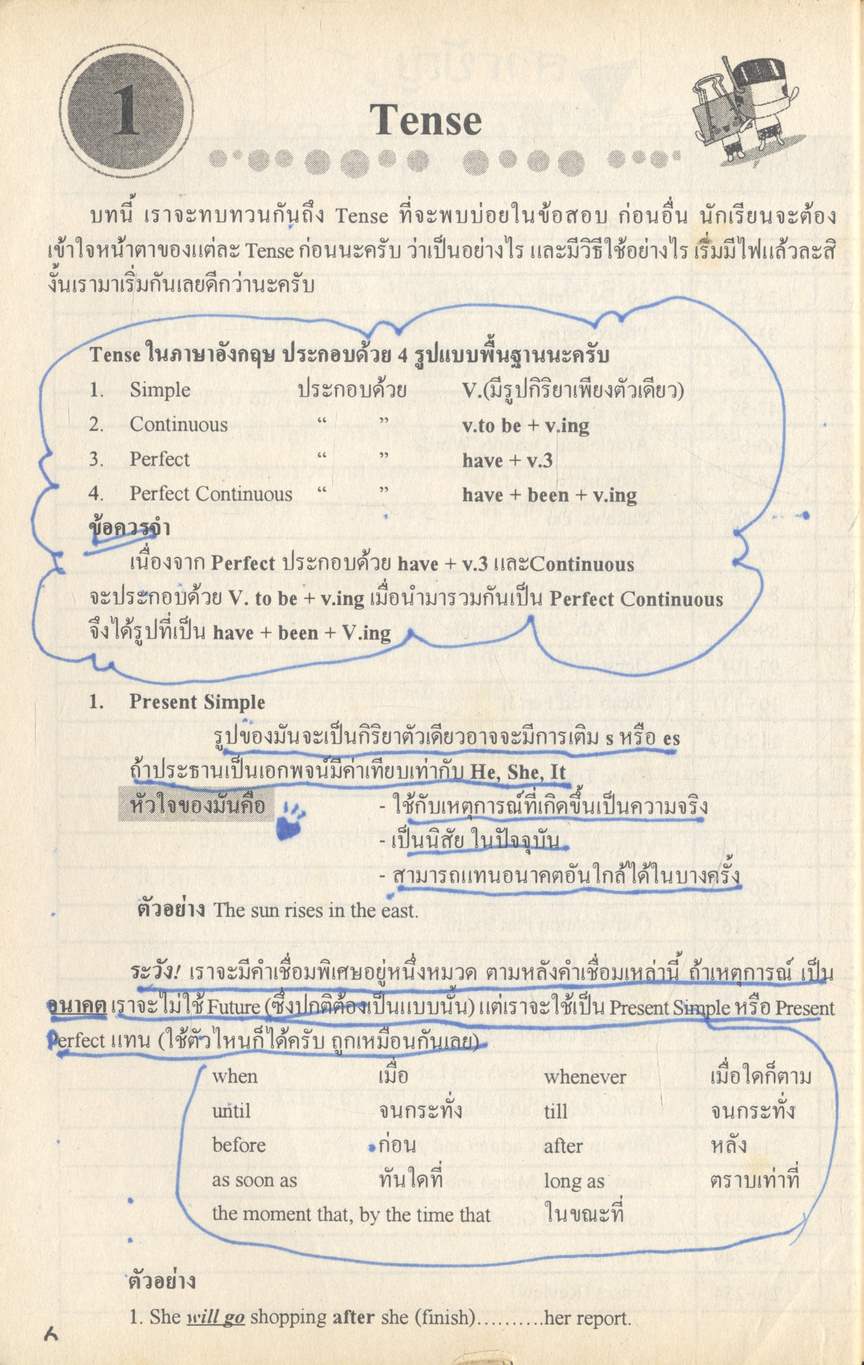 1
Tense
บทนี้ เราจะทบทวนกันถึง Tense ที่จะพบบ่อยในข้อสอบ ก่อนอื่น นักเรียนจะต้อง
เข้าใจหน้าตาของแต่ละ Tense ก่อนนะครับ ว่าเป็นอย่างไร และมีวิธีใช้อย่างไร เริ่มมีไฟแล้วละสิ
งั้นเรามาเริ่มกันเลยดีกว่านะครับ
Tense ในภาษาอังกฤษ ประกอบด้วย 4 รูปแบบพื้นฐานนะครับ
1. Simple ประกอบด้วย V.(มีรูปกิริยาเพียงตัวเดียว)
2. Continuous “ ” v.to be + v.ing
3. Perfect “ ” have + v.3
4. Perfect Continuous “ ” have + been + v.ing
ข้อควรจำ
เนื่องจาก Perfect ประกอบด้วย have + v.3 และContinuous
จะประกอบด้วย V. to be + v.ing เมื่อนำมารวมกันเป็น Perfect Continuous
จึงได้รูปที่เป็น have + been + V.ing
1. Present Simple
รูปของมันจะเป็นกิริยาตัวเดียวอาจจะมีการเติม s หรือ es
ถ้าประธานเป็นเอกพจน์มีค่าเทียบเท่ากับ He, She, It
หัวใจของมันคือ - ใช้กับเหตุการณ์ที่เกิดขึ้นเป็นความจริง
- เป็นนิสัย ในปัจจุบัน
- สามารถแทนอนาคตอันใกล้ได้ในบางครั้ง
ตัวอย่าง The sun rises in the east.
ระวัง! เราจะมีคำเชื่อมพิเศษอยู่หนึ่งหมวด ตามหลังคำเชื่อมเหล่านี้ ถ้าเหตุการณ์ เป็น
อนาคต เราจะไม่ใช้ Future (ซึ่งปกติต้องเป็นแบบนั้น) แต่เราจะใช้เป็น Present Simple หรือ Present
Perfect แทน (ใช้ตัวไหนก็ได้ครับ ถูกเหมือนกันเลย)
when เมื่อ whenever เมื่อใดก็ตาม
until จนกระทั่ง till จนกระทั่ง
before ก่อน after หลัง
as soon as ทันใดที่ long as ตราบเท่าที่
the moment that, by the time that ในขณะที่
ตัวอย่าง
1. She will go shopping after she (finish)..........her report.